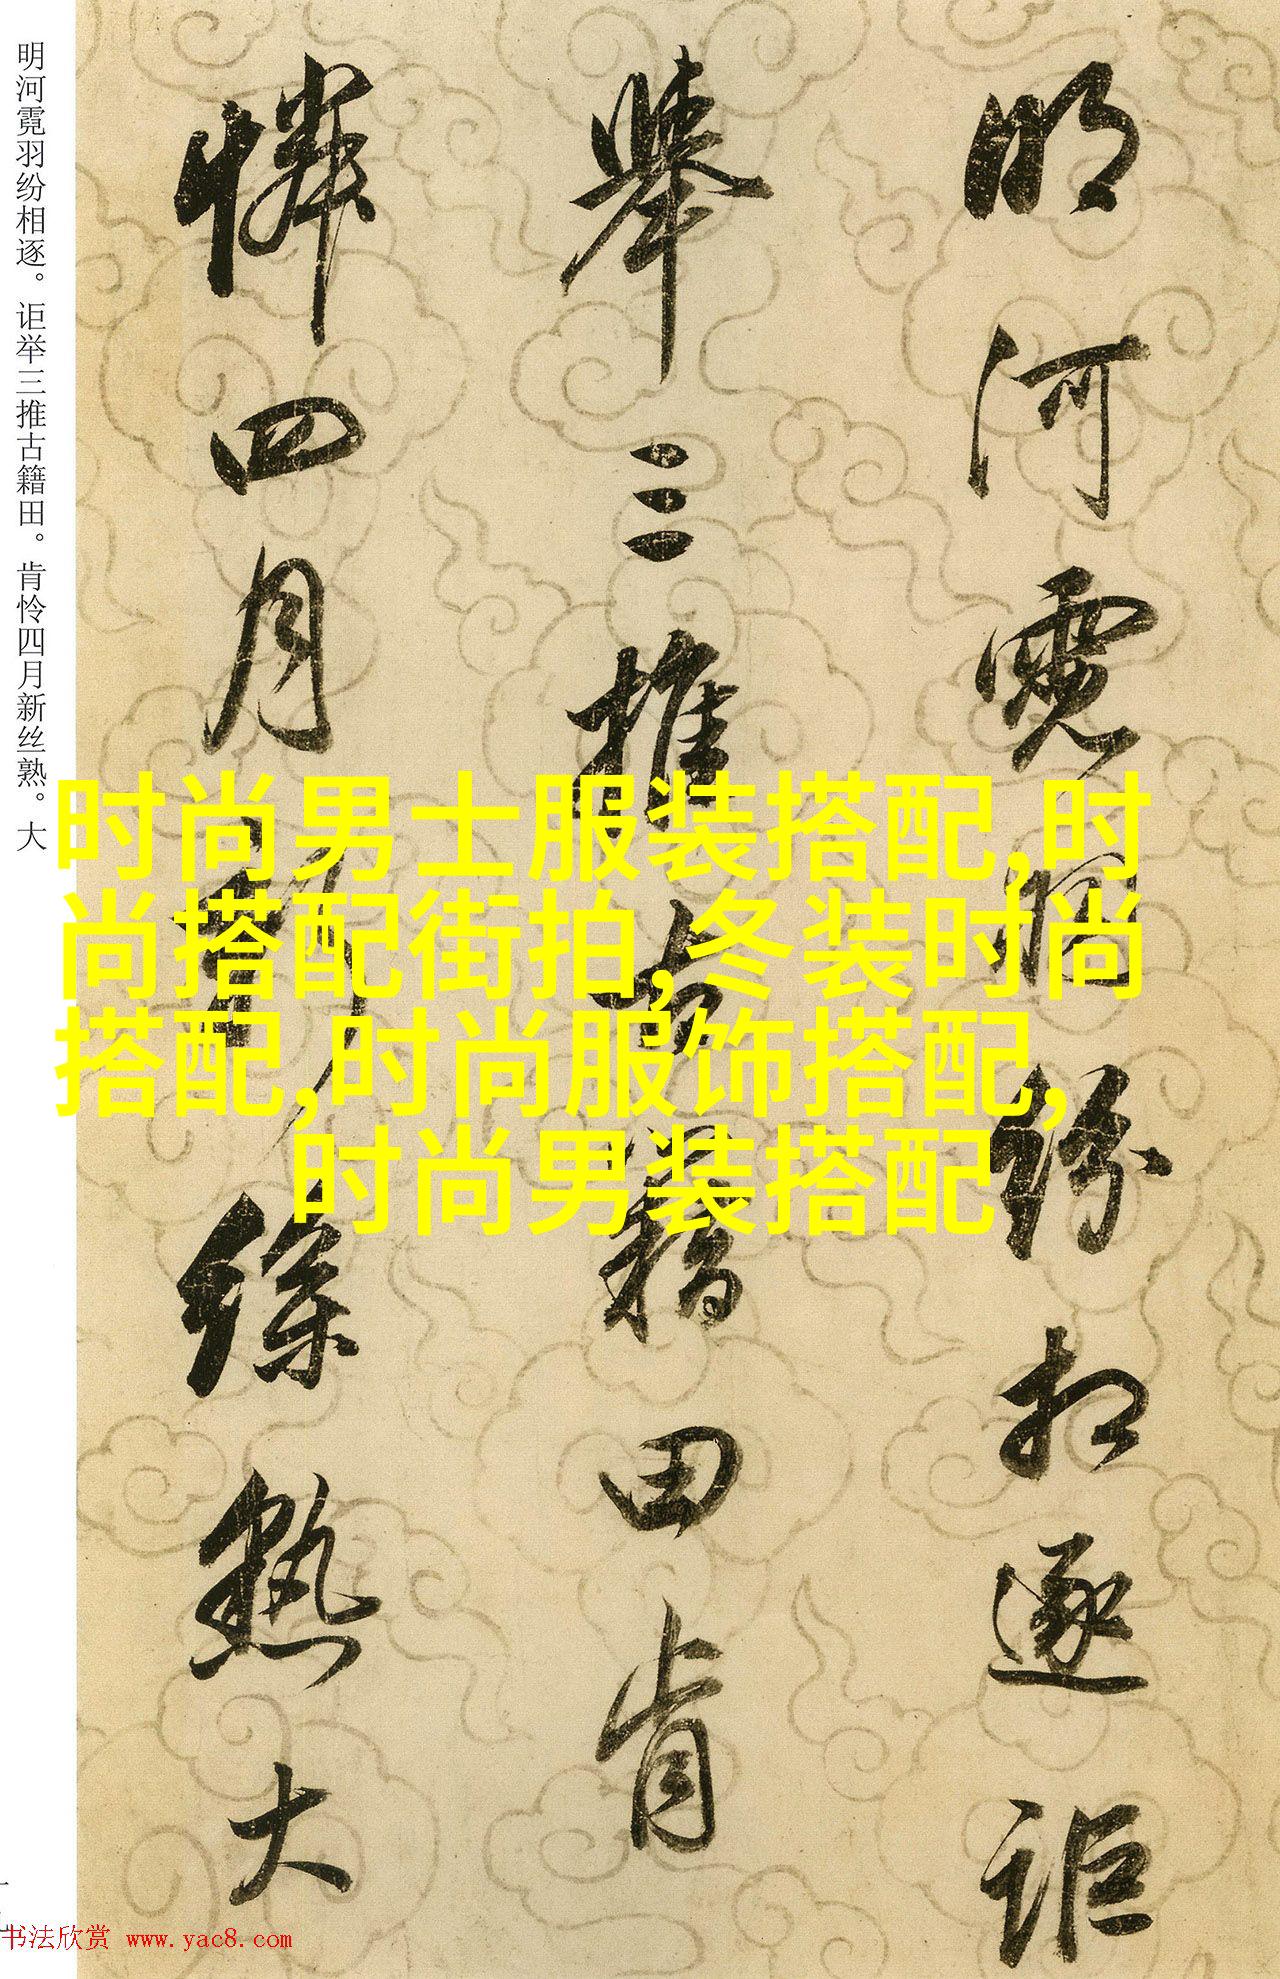 明河霓羽纷相逐。讵举三推古籍田。肯怜四月新丝熟。大
明河霓羽紛相逐詎
舉三推古籍田肯
憐四月新絲熟大
时尚男士服装搭配,时
尚搭配街拍,冬装时尚
搭配,时尚服饰搭配,
时尚男装搭配
书法欣赏 www.yac8.com